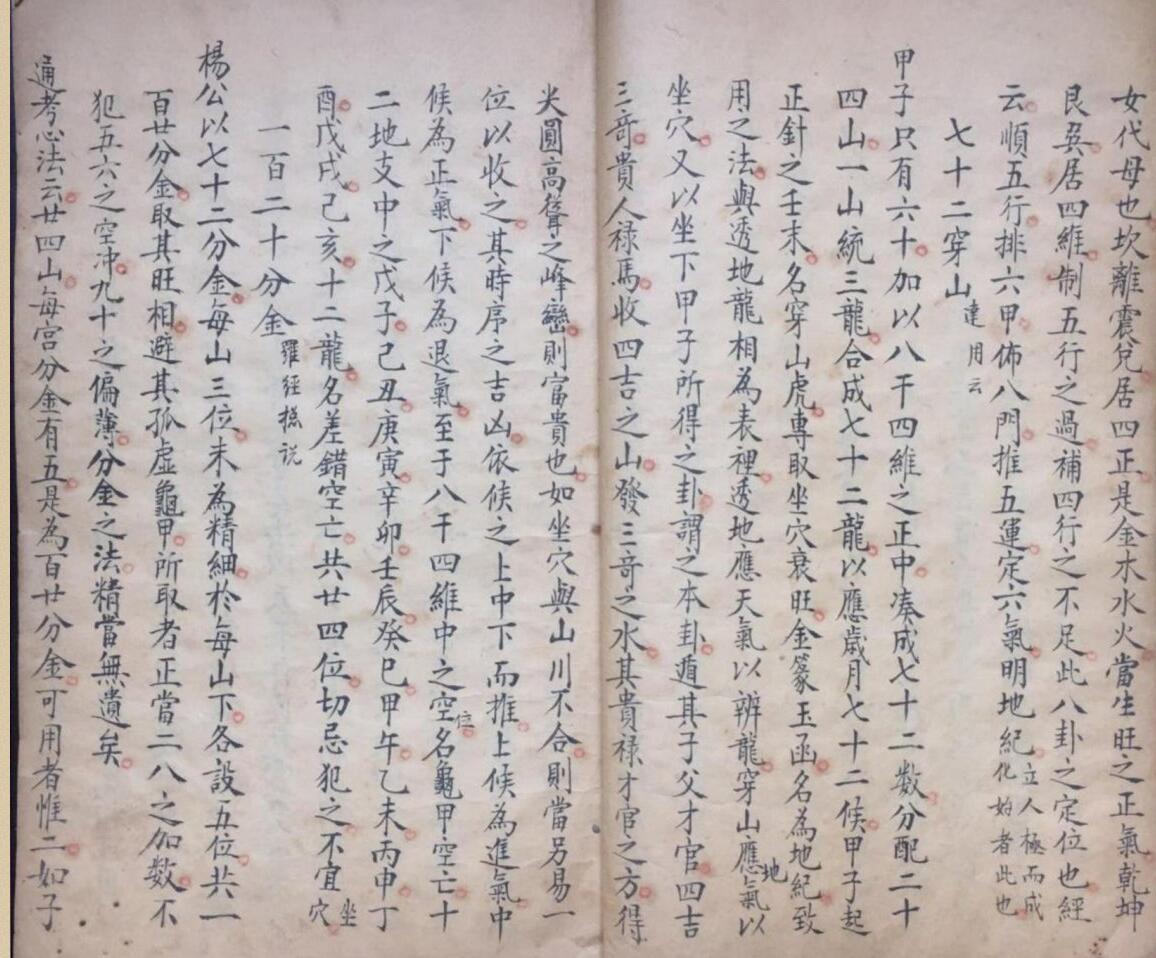 女代母也坎離震兌居四正是金木水火當生旺之正氣乾坤
艮巽居四維制五行之過補四行之不足此八卦之定位也經
云順五行排六甲佈八門推五運定六氣明地紀立人極而成化始者此也
七十二穿山達用云
甲子只有六十加以八干四維之正中凑成七十二数分配二十
四山一山統三龍合成七十二龍以應歲月七十二候甲子起
正針之壬末名穿山虎專取坐穴衰旺金篆玉函名為地紀致
用之法與透地龍相為表裡透地應天氣以辨龍穿山應地氣以
坐穴又以坐下甲子所得之卦謂之本卦遁其子父才官四吉
三竒貴人禄馬收四吉之山發三竒之水其貴禄才官之方得
尖圓高聳之峰巒則富貴也如坐穴與山川不合則當另易一
位以收之其時序之吉凶依候之上中下而推上候為進氣中
候為正氣下候為退氣至于八干四維中之空位名龜甲空亡十
二地支中之戊子己丑庚寅辛卯壬辰癸巳甲午乙未丙申丁
酉戊戌己亥十二龍名差錯空亡共廿四位切忌犯之不宜坐穴
一百二十分金羅經㧾説
楊公以七十二分金每山三位未為精細於每山下各設五位共一
百廿分金取其旺相避其孤虛龜甲所取者正當二八之加数不
犯五六之空冲九十之偏薄分金之法精當無遺矣
通考心法云廿四山每宫分金有五是為百廿分金可用者惟二如子